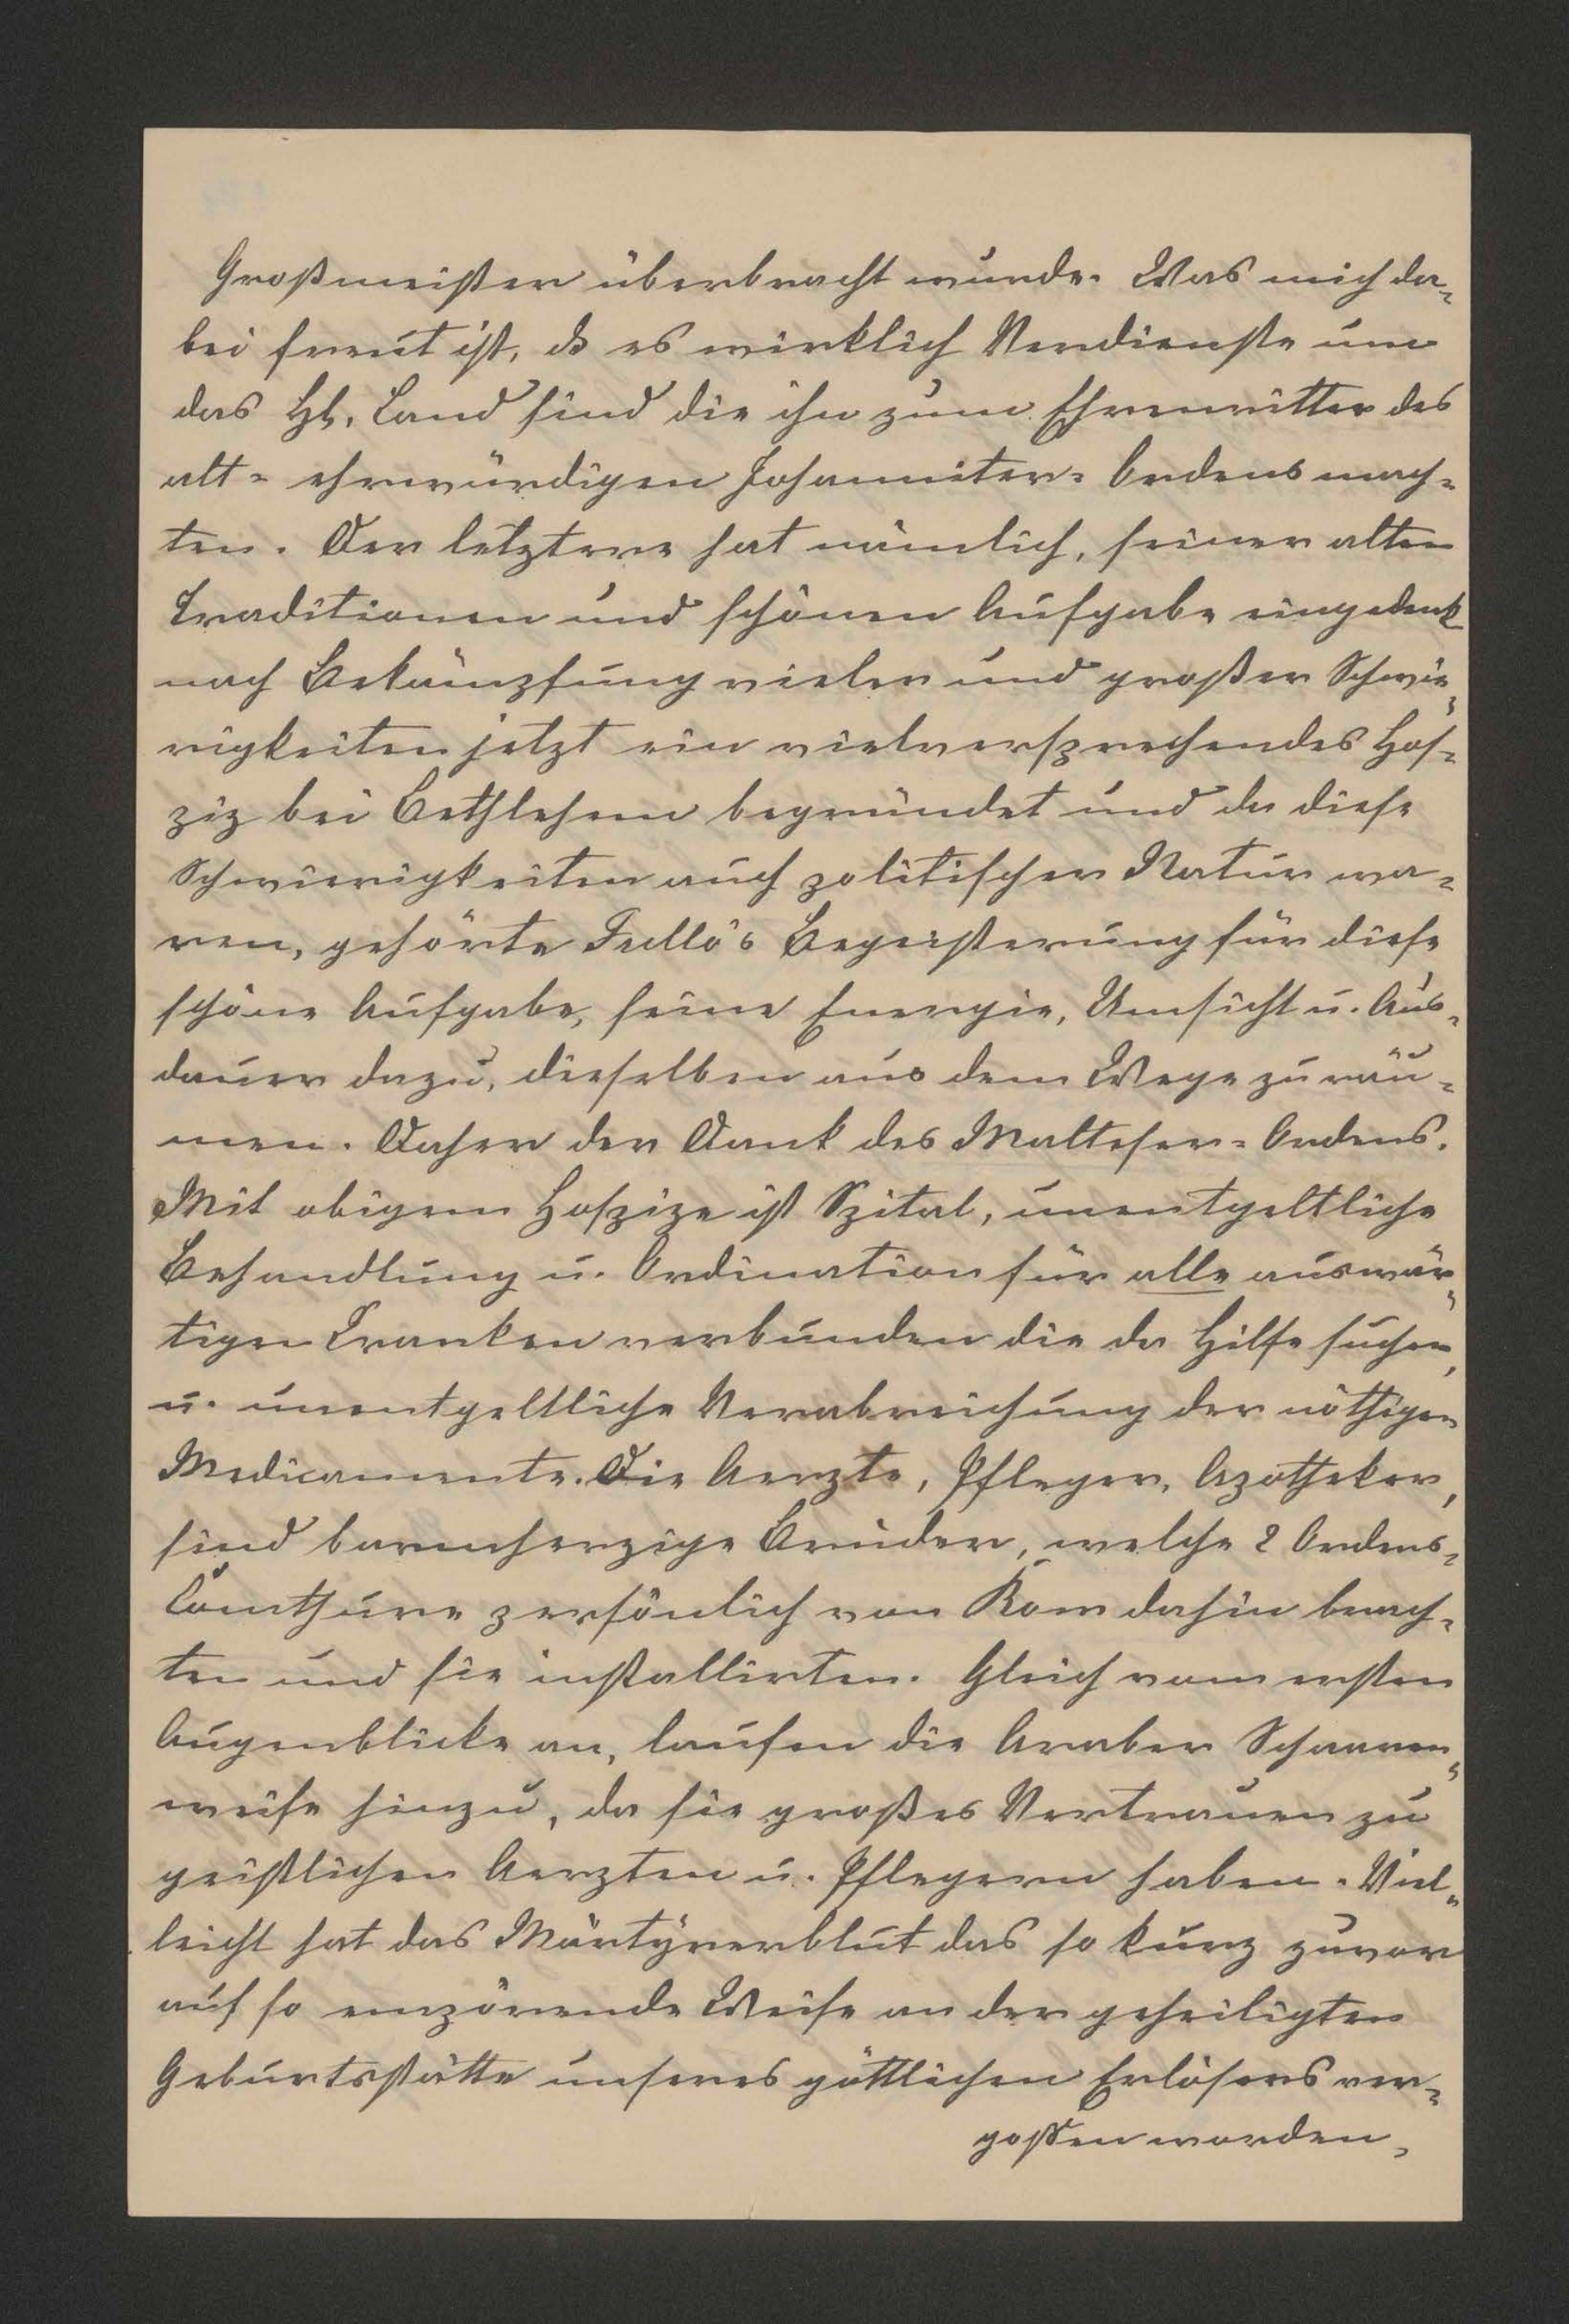 Großmeister überbracht wurde. Was mich da-
bei freut ist, dß es wirklich Verdienste um
das Hl. Land sind die ihn zum Ehrenritter des
alt-ehrwürdigen Johanniter-Ordens mach-
ten. Der letztere hat nämlich, seiner alten
Traditionen und schönen Aufgabe eingedenk
nach Bekämpfung vieler und großer Schwie-
rigkeiten jetzt ein vielversprechendes Hos-
piz bei Bethlehem begründet und da diese
Schwierigkeiten auch politischer Natur wa-
ren, gehörte Tullo's Begeisterung für diese
schöne Aufgabe, seine Energie, Umsicht u. Aus-
dauer dazu, dieselben aus dem Wege zu räu-
men. Daher der Dank des Malteser-Ordens.
Mit obigem Hospize ist Spital, unentgeltliche
Behandlung u. Ordination für alle auswär-
tigen Kranken verbunden die da Hilfe suchen,
u. unentgeltliche Verabreichung der nöthigen
Medicamente. Die Aerzte, Pfleger, Apotheker,
sind barmherzige Brüder, welche 2 Ordens-
Comthure persönlich von Rom dahin brach-
ten und sie installirten. Gleich vom ersten
Augenblicke an, laufen die Araber Schaaren-
weise hinzu, da sie großes Vertrauen zu
geistlichen Aerzten u. Pflegern haben. Viel-
leicht hat das Märtyrerblut das so kurz zuvor
auf so empörende Weise an der geheiligten
Geburtsstätte unseres göttlichen Erlösers ver-
gossen worden,